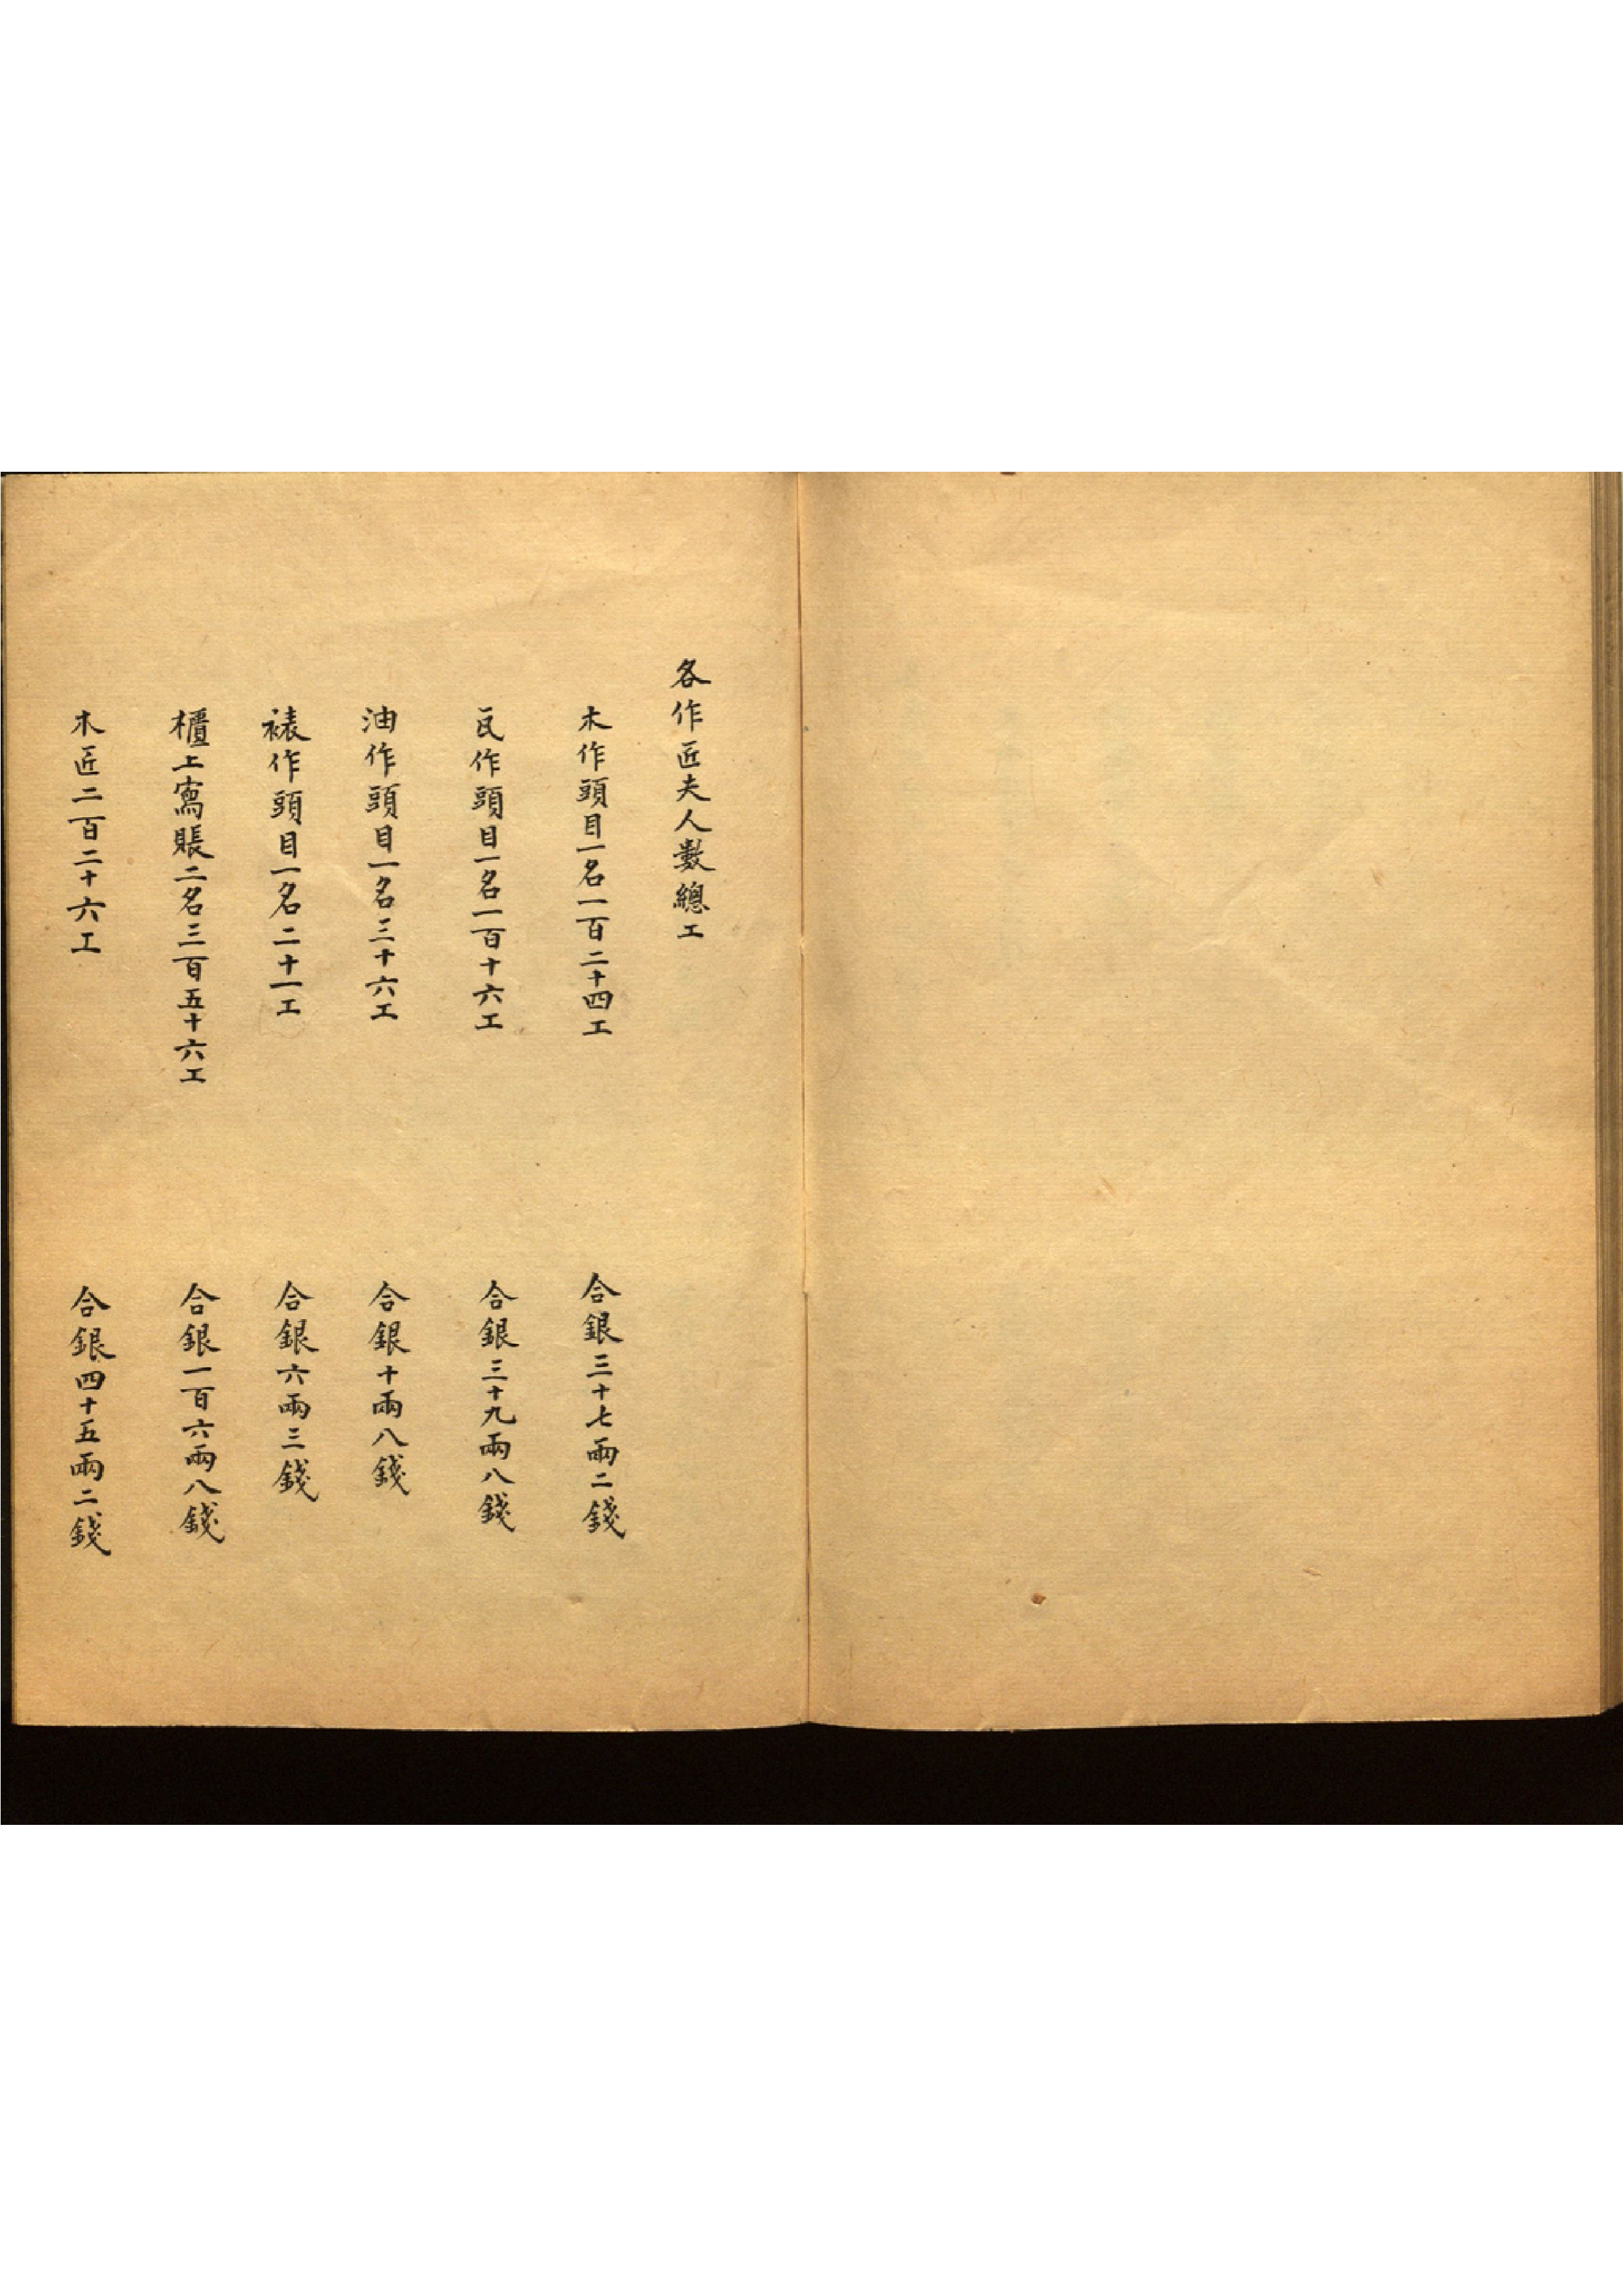 各作匠夫人數總工
木作頭目一名一百二十四工
合銀三十七兩二錢
瓦作頭目一名一百十六工
合銀三十九兩八錢
油作頭目一名三十六工
合銀十兩八錢
裱作頭目一名二十一工
合銀六兩三錢
櫃上寫賬二名三百五十六工
合銀一百六兩八錢
木匠二百二十六工
合銀四十五兩二錢